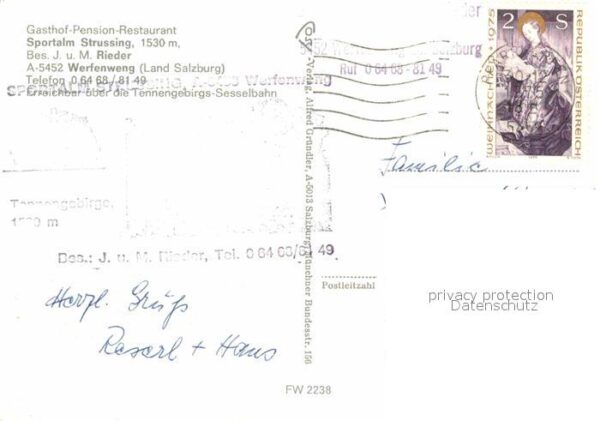 Gasthof-Pension-Restaurant
Sportalm Strussing, 1530 m,
Bes. J. u. M. Rieder
A-5452 Werfenweng (Land Salzburg)
Telefon 0 64 68 / 81 49
Erreichbar über die Tennengebirgs-Sesselbahn
Werfenweng
Tennengebirge,
Bes.: J. u. M. Rieder, Tel. 0 64 68/81 49
Herzl. Grüß
Reserl + Haus
FW 2238
Verlag Alfred Gründler, A-5013 Salzburg, Münchner Bundesstr. 156
Ruf 0 64 68 - 81 49
2 S
REPUBLIK ÖSTERREICH
WEIHNACHTEN 1975
Familie
Postleitzahl
privacy protection
Datenschutz